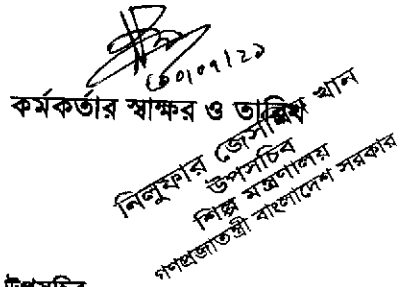 কর্মকর্তার স্বাক্ষর ও তারিখ
নিলুফার জেসমিন খান
উপসচিব
শিল্প মন্ত্রণালয়
গণপ্রজাতন্ত্রী বাংলাদেশ সরকার
উপসচিব